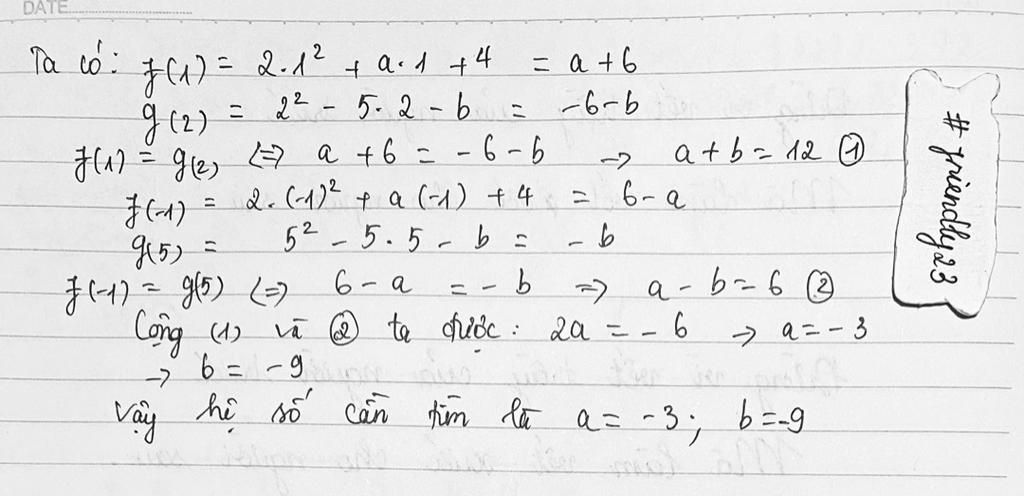 DATE
Ta có: f(1) = 2.1² + a.1 + 4 = a + 6
g(2) = 2² - 5.2 - b = -6-b
f(1) = g(2) <=> a + 6 = -6 - b → a + b = 12 ①
f(-1) = 2.(-1)² + a(-1) + 4 = 6 - a
g(5) = 5² - 5.5 - b = - b
f(-1) = g(5) <=> 6 - a = - b => a - b = 6 ②
Cộng (1) và ② ta được: 2a = - 6 → a = - 3
→ b = - 9
Vậy hệ số cần tìm là a = -3; b = -9
# friendly23